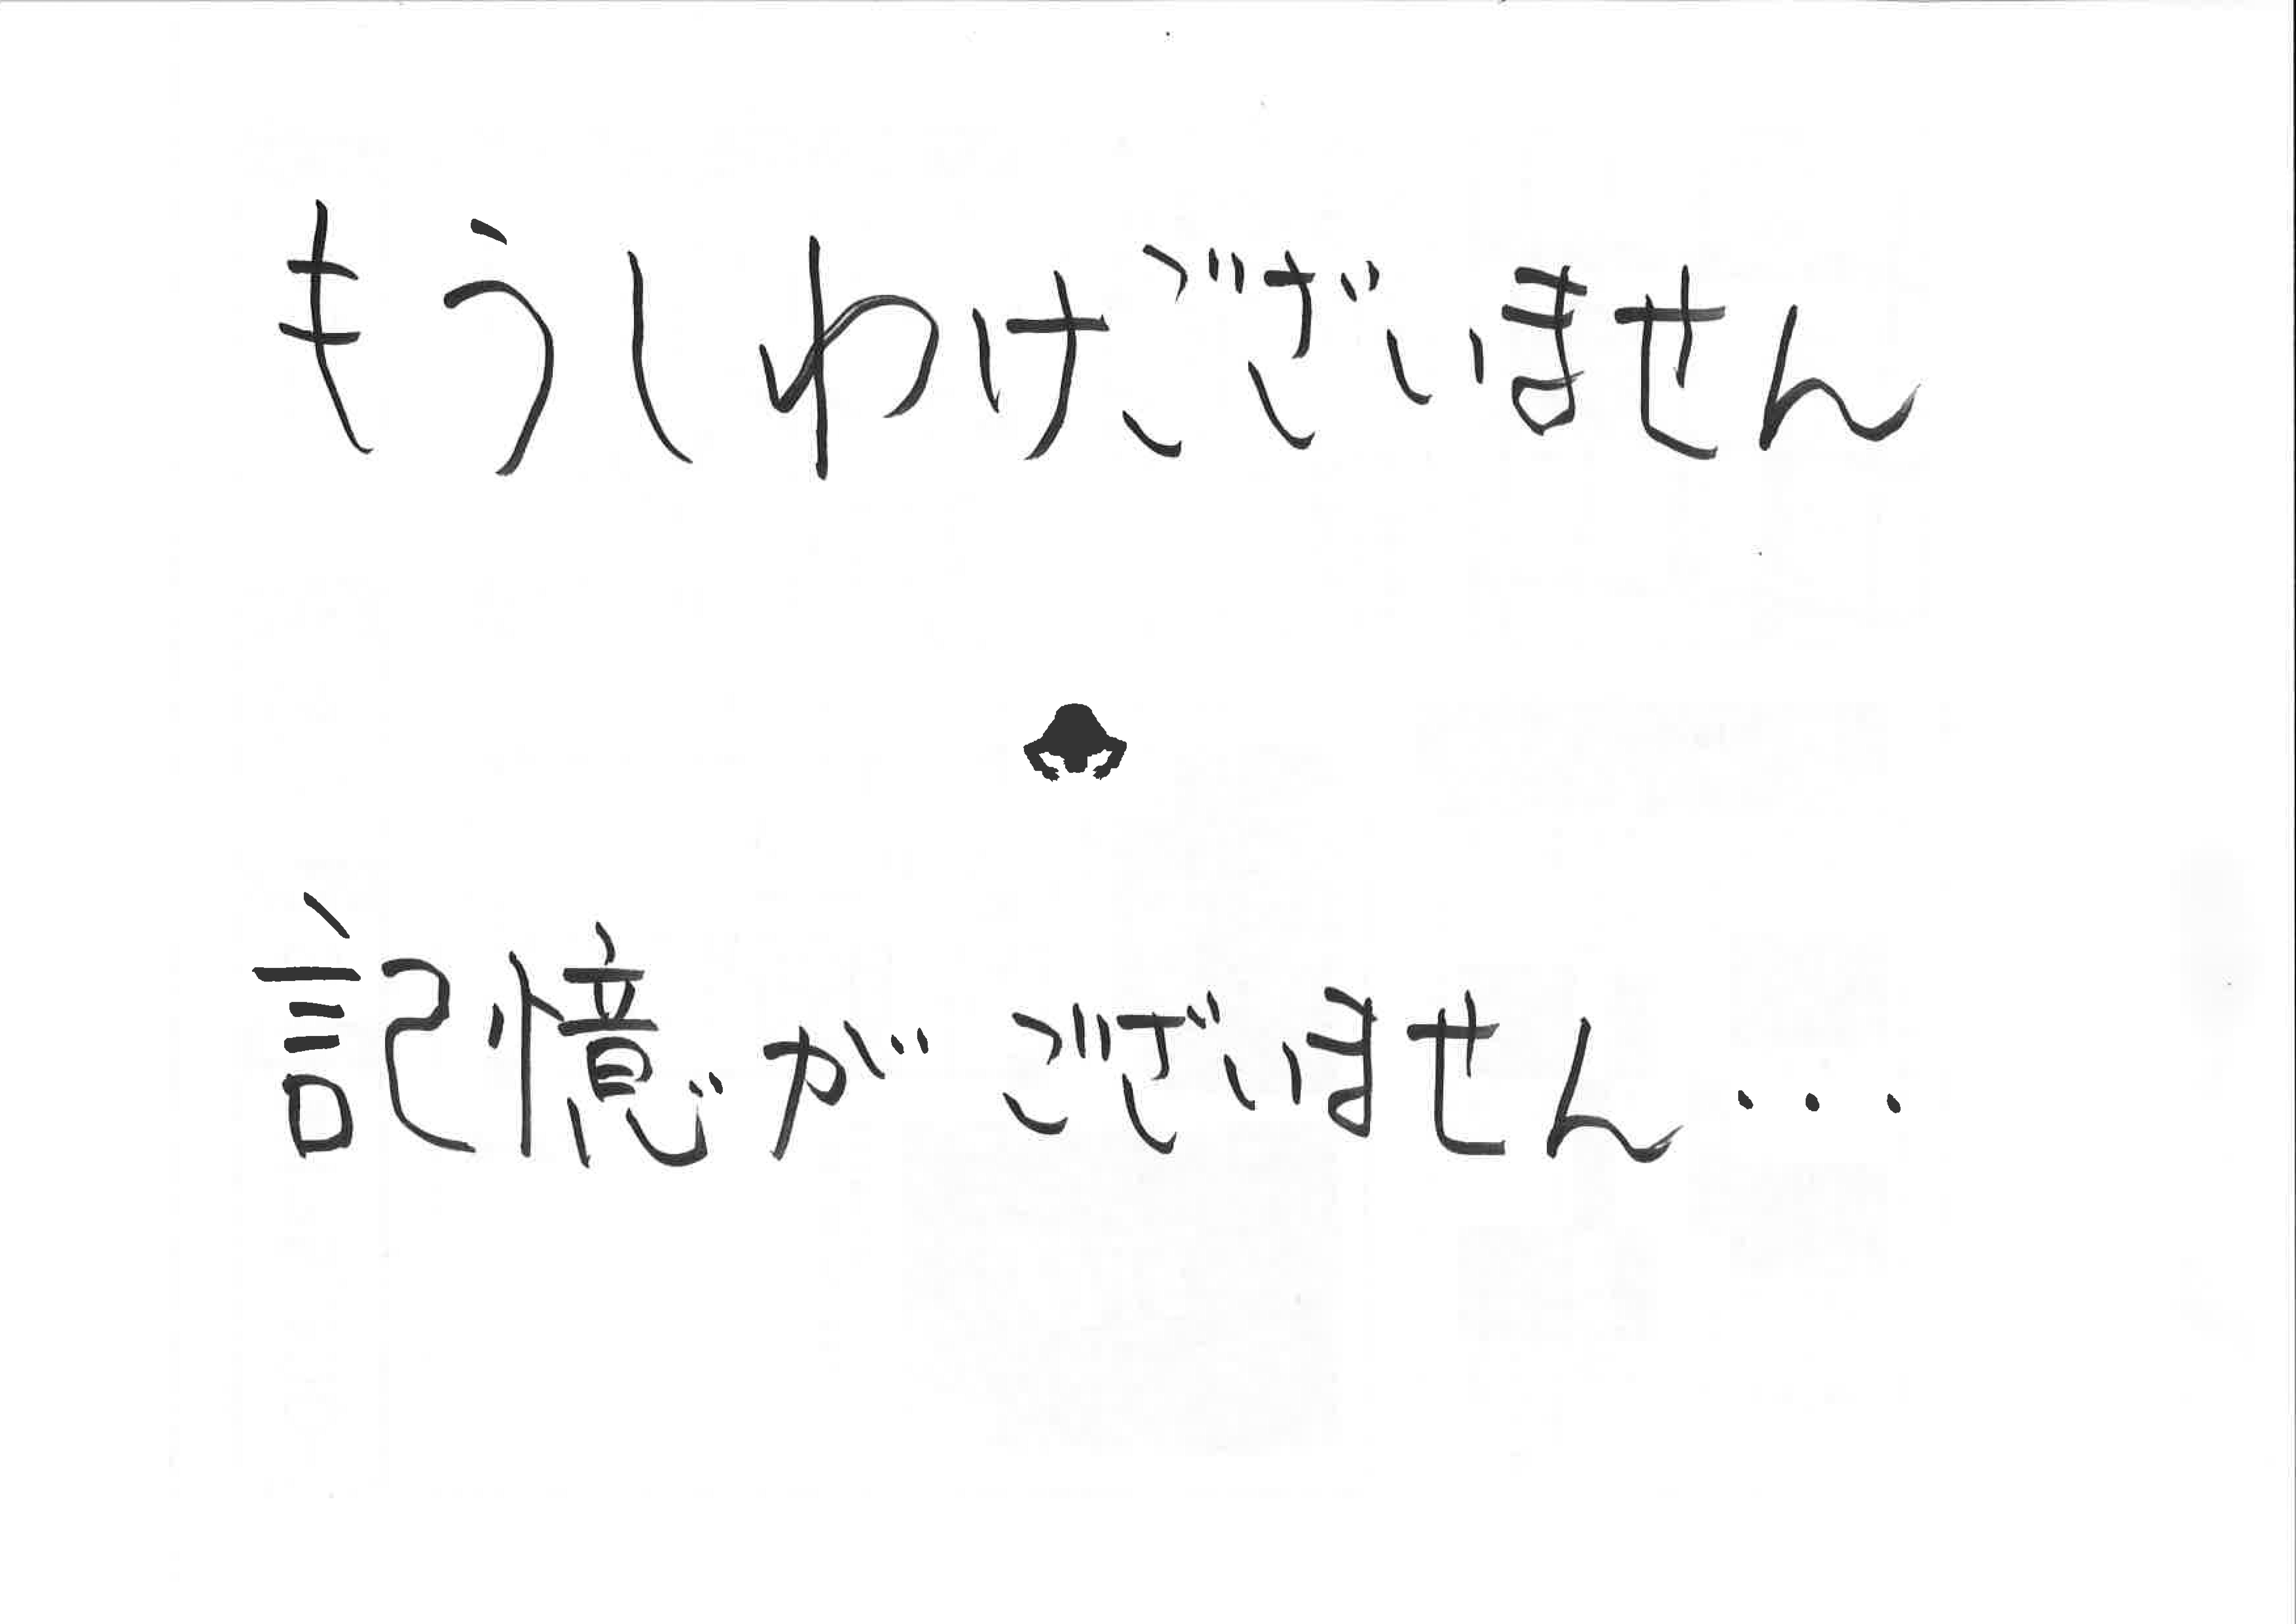 もうしわけございません
記憶がございません...